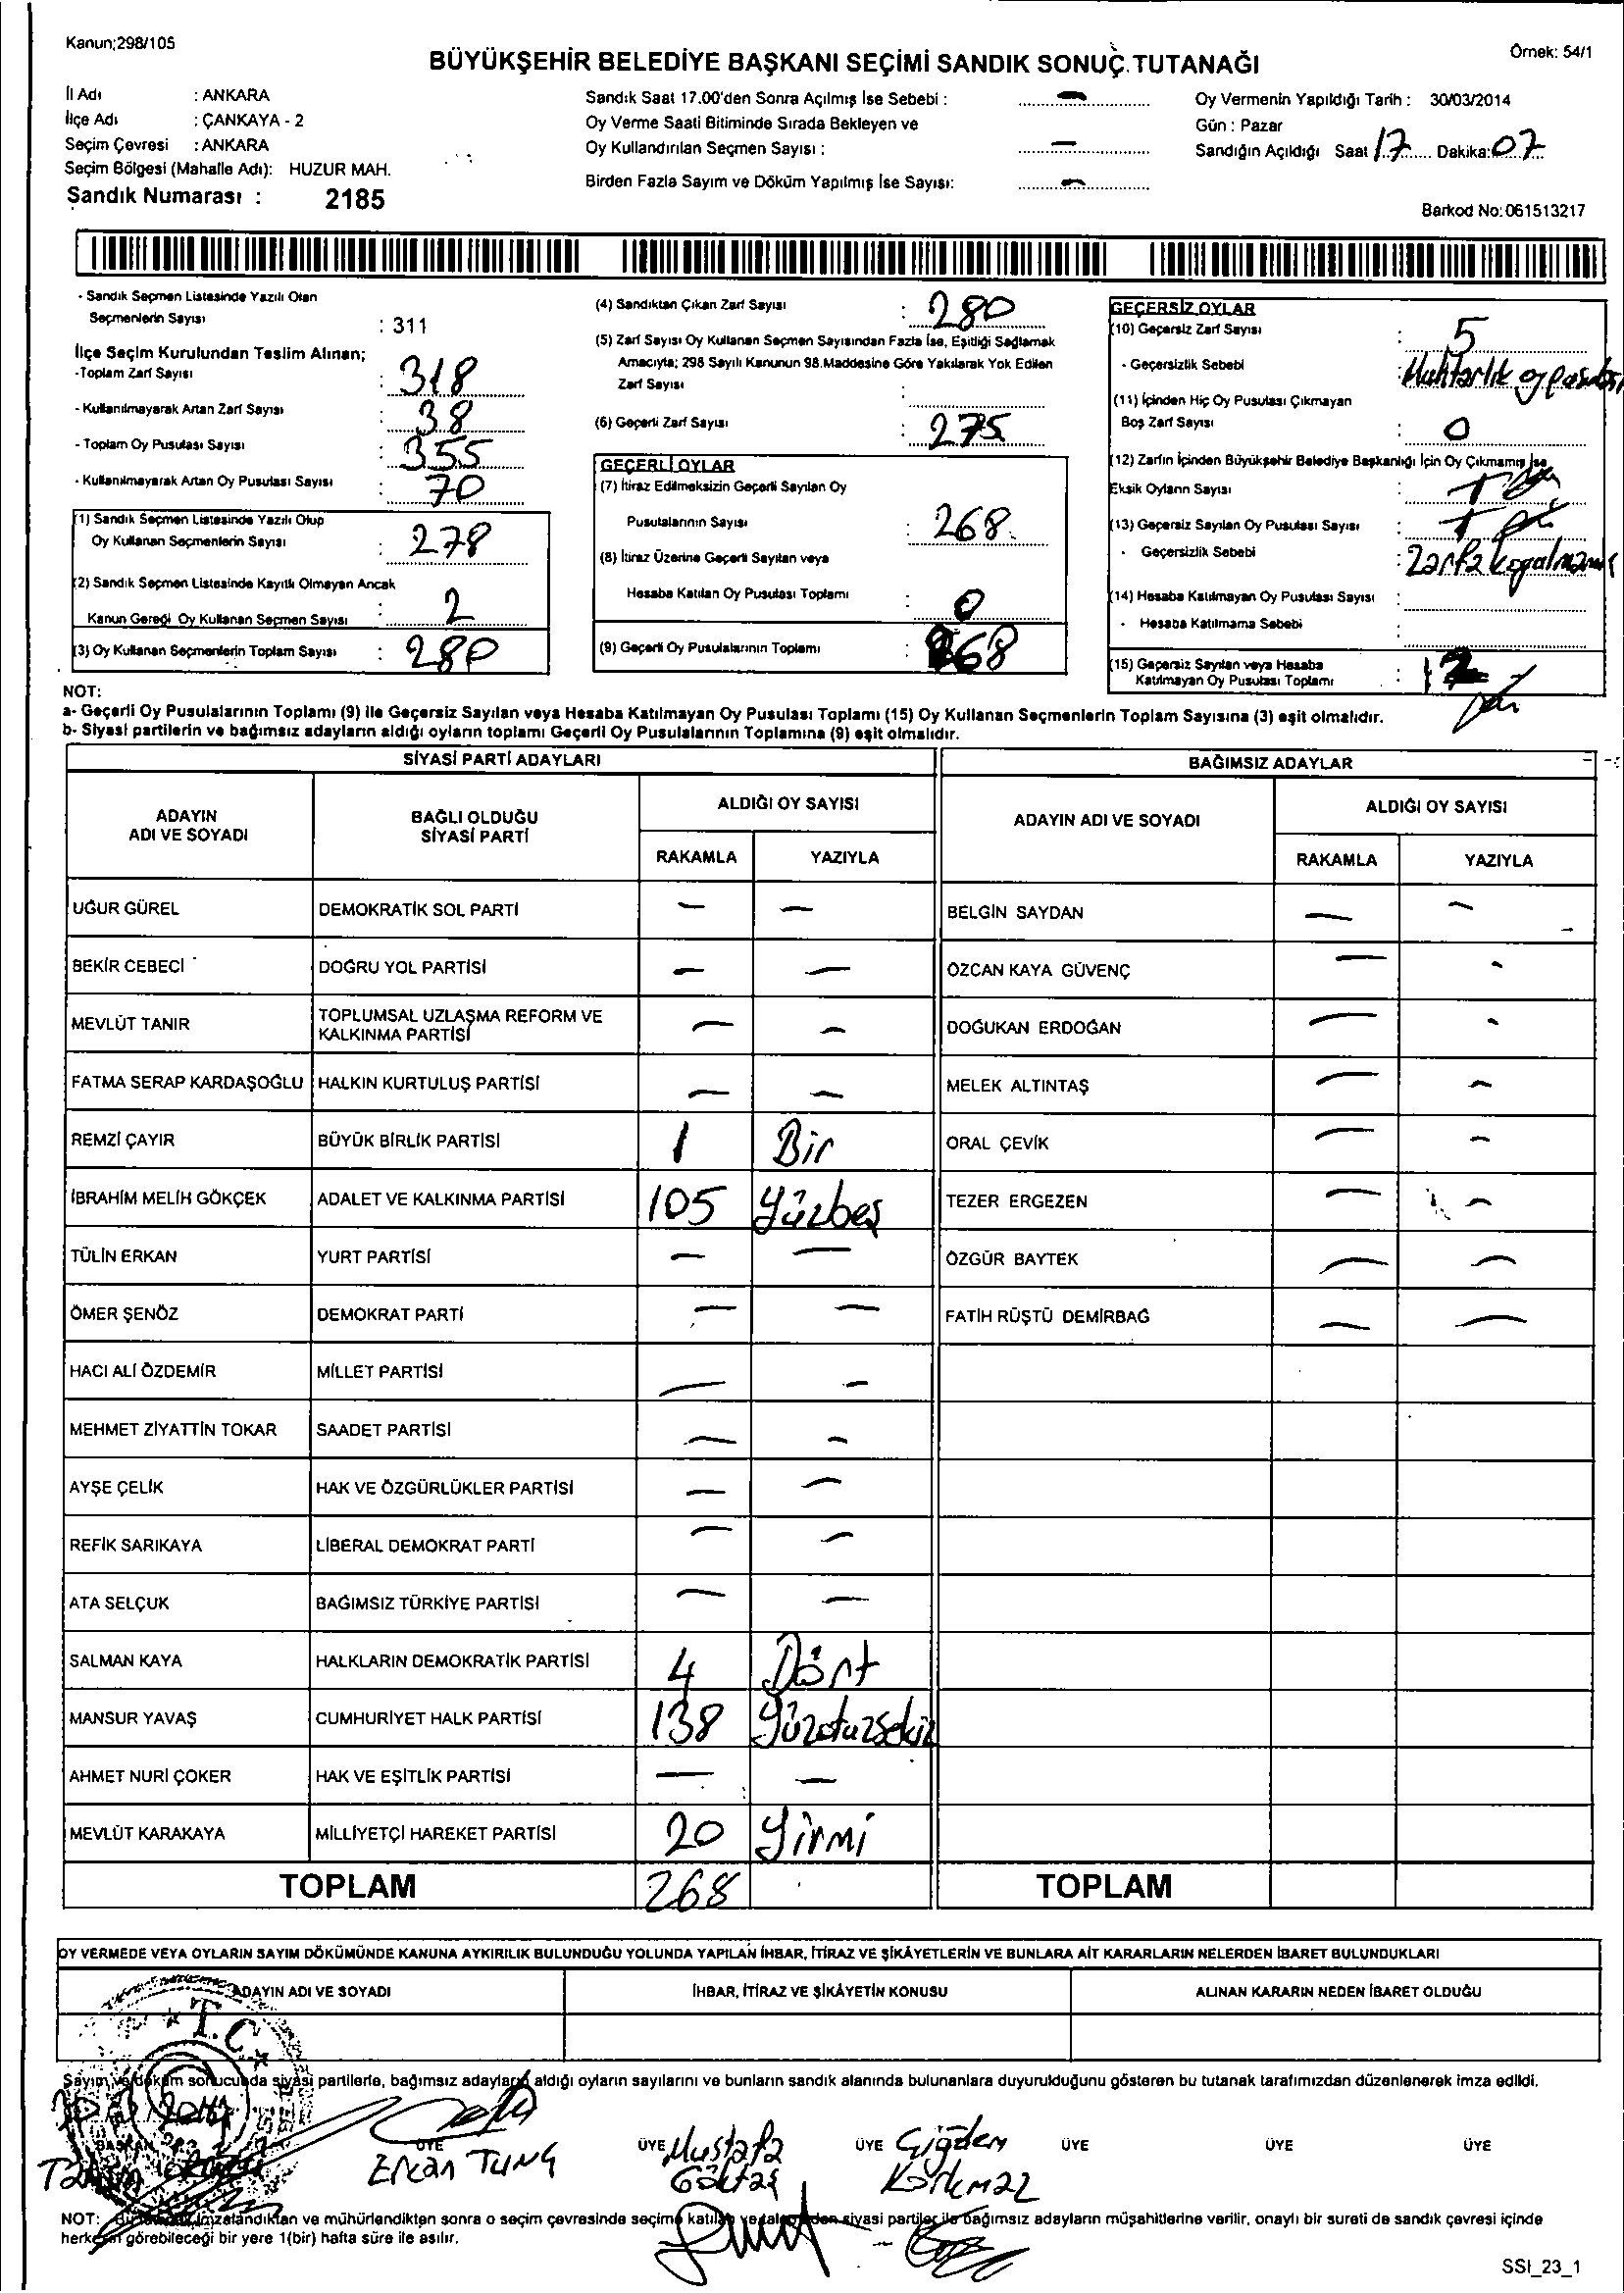 Kanun;298/105
BÜYÜKŞEHİR BELEDİYE BAŞKANI SEÇİMİ SANDIK SONUÇ TUTANAĞI
Örnek: 54/1
İl Adı : ANKARA
İlçe Adı : ÇANKAYA - 2
Seçim Çevresi : ANKARA
Seçim Bölgesi (Mahalle Adı): HUZUR MAH.
Sandık Numarası : 2185
Sandık Saat 17.00'den Sonra Açılmış İse Sebebi : —
Oy Verme Saati Bitiminde Sırada Bekleyen ve
Oy Kullandırılan Seçmen Sayısı : —
Birden Fazla Sayım ve Döküm Yapılmış İse Sayısı: —
Oy Vermenin Yapıldığı Tarih : 30/03/2014
Gün : Pazar
Sandığın Açıldığı Saat 17 Dakika: 07
Barkod No: 061513217
- Sandık Seçmen Listesinde Yazılı Olan
Seçmenlerin Sayısı : 311
İlçe Seçim Kurulundan Teslim Alınan;
-Toplam Zarf Sayısı : 318
- Kullanılmayarak Artan Zarf Sayısı : 38
- Toplam Oy Pusulası Sayısı : 355
- Kullanılmayarak Artan Oy Pusulası Sayısı : 70
(1) Sandık Seçmen Listesinde Yazılı Olup
Oy Kullanan Seçmenlerin Sayısı : 278
(2) Sandık Seçmen Listesinde Kayıtlı Olmayan Ancak
Kanun Gereği Oy Kullanan Seçmen Sayısı : 2
(3) Oy Kullanan Seçmenlerin Toplam Sayısı : 280
(4) Sandıktan Çıkan Zarf Sayısı : 280
(5) Zarf Sayısı Oy Kullanan Seçmen Sayısından Fazla İse, Eşitliği Sağlamak
Amacıyla; 298 Sayılı Kanunun 98.Maddesine Göre Yakılarak Yok Edilen
Zarf Sayısı :
(6) Geçerli Zarf Sayısı : 275
GEÇERLİ OYLAR
(7) İtiraz Edilmeksizin Geçerli Sayılan Oy
Pusulalarının Sayısı : 268
(8) İtiraz Üzerine Geçerli Sayılan veya
Hesaba Katılan Oy Pusulası Toplamı : 0
(9) Geçerli Oy Pusulalarının Toplamı : 268
GEÇERSİZ OYLAR
(10) Geçersiz Zarf Sayısı : 5
- Geçersizlik Sebebi : Muhtarlık oy pusulası
(11) İçinden Hiç Oy Pusulası Çıkmayan
Boş Zarf Sayısı : 0
(12) Zarfın İçinden Büyükşehir Belediye Başkanlığı İçin Oy Çıkmamış İse
Eksik Oyların Sayısı :
(13) Geçersiz Sayılan Oy Pusulası Sayısı :
- Geçersizlik Sebebi :
(14) Hesaba Katılmayan Oy Pusulası Sayısı :
- Hesaba Katılmama Sebebi :
(15) Geçersiz Sayılan veya Hesaba
Katılmayan Oy Pusulası Toplamı : 12
NOT:
a- Geçerli Oy Pusulalarının Toplamı (9) ile Geçersiz Sayılan veya Hesaba Katılmayan Oy Pusulası Toplamı (15) Oy Kullanan Seçmenlerin Toplam Sayısına (3) eşit olmalıdır.
b- Siyasi partilerin ve bağımsız adayların aldığı oyların toplamı Geçerli Oy Pusulalarının Toplamına (9) eşit olmalıdır.
SİYASİ PARTİ ADAYLARI
ADAYIN ADI VE SOYADI BAĞLI OLDUĞU SİYASİ PARTİ ALDIĞI OY SAYISI
RAKAMLA YAZIYLA
UĞUR GÜREL DEMOKRATİK SOL PARTİ — —
BEKİR CEBECİ DOĞRU YOL PARTİSİ — —
MEVLÜT TANIR TOPLUMSAL UZLAŞMA REFORM VE KALKINMA PARTİSİ — —
FATMA SERAP KARDAŞOĞLU HALKIN KURTULUŞ PARTİSİ — —
REMZİ ÇAYIR BÜYÜK BİRLİK PARTİSİ 1 Bir
İBRAHİM MELİH GÖKÇEK ADALET VE KALKINMA PARTİSİ 105 Yüzbeş
TÜLİN ERKAN YURT PARTİSİ — —
ÖMER ŞENÖZ DEMOKRAT PARTİ — —
HACI ALİ ÖZDEMİR MİLLET PARTİSİ — —
MEHMET ZİYATTİN TOKAR SAADET PARTİSİ — —
AYŞE ÇELİK HAK VE ÖZGÜRLÜKLER PARTİSİ — —
REFİK SARIKAYA LİBERAL DEMOKRAT PARTİ — —
ATA SELÇUK BAĞIMSIZ TÜRKİYE PARTİSİ — —
SALMAN KAYA HALKLARIN DEMOKRATİK PARTİSİ 4 Dört
MANSUR YAVAŞ CUMHURİYET HALK PARTİSİ 138 Yüzotuzsekiz
AHMET NURİ ÇOKER HAK VE EŞİTLİK PARTİSİ — —
MEVLÜT KARAKAYA MİLLİYETÇİ HAREKET PARTİSİ 20 Yirmi
TOPLAM 268
BAĞIMSIZ ADAYLAR
ADAYIN ADI VE SOYADI ALDIĞI OY SAYISI
RAKAMLA YAZIYLA
BELGİN SAYDAN — —
ÖZCAN KAYA GÜVENÇ — -
DOĞUKAN ERDOĞAN — -
MELEK ALTINTAŞ — —
ORAL ÇEVİK — —
TEZER ERGEZEN — —
ÖZGÜR BAYTEK — —
FATİH RÜŞTÜ DEMİRBAĞ — —
TOPLAM
OY VERMEDE VEYA OYLARIN SAYIM DÖKÜMÜNDE KANUNA AYKIRILIK BULUNDUĞU YOLUNDA YAPILAN İHBAR, İTİRAZ VE ŞİKÂYETLERİN VE BUNLARA AİT KARARLARIN NELERDEN İBARET BULUNDUKLARI
ADAYIN ADI VE SOYADI İHBAR, İTİRAZ VE ŞİKÂYETİN KONUSU ALINAN KARARIN NEDEN İBARET OLDUĞU
T.C.
Sayım ve döküm sonucunda siyasi partilerle, bağımsız adayların aldığı oyların sayılarını ve bunların sandık alanında bulunanlara duyurulduğunu gösteren bu tutanak tarafımızdan düzenlenerek imza edildi.
BAŞKAN ÜYE ÜYE ÜYE ÜYE ÜYE ÜYE
Ercan TUNÇ
Mustafa Göktaş
Çiğdem Korkmaz
NOT: imzalandıktan ve mühürlendikten sonra o seçim çevresinde seçime katılan ve talep eden siyasi partiler ile bağımsız adayların müşahitlerine verilir, onaylı bir sureti de sandık çevresi içinde
herkesin görebileceği bir yere 1(bir) hafta süre ile asılır.
SSI_23_1